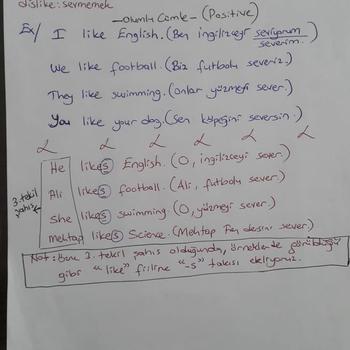 dislike: sevmemek
-olumlu Cümle- (Positive)
Ex/ I like English. (Ben ingilizceyi seviyorum / severim.)
We like football. (Biz futbolu severiz.)
They like swimming. (onlar yüzmeyi sever.)
You like your dog. (Sen köpeğini seversin.)
He likes English. (O, ingilizceyi sever.)
Ali likes football. (Ali, futbolu sever.)
3. tekil şahıs
She likes swimming. (O, yüzmeyi sever.)
Mehtap likes Science. (Mehtap Fen dersini sever.)
Not: Özne 3. tekil şahıs olduğunda, örneklerde görüldüğü
gibi "like" fiiline "-s" takısı ekliyoruz.